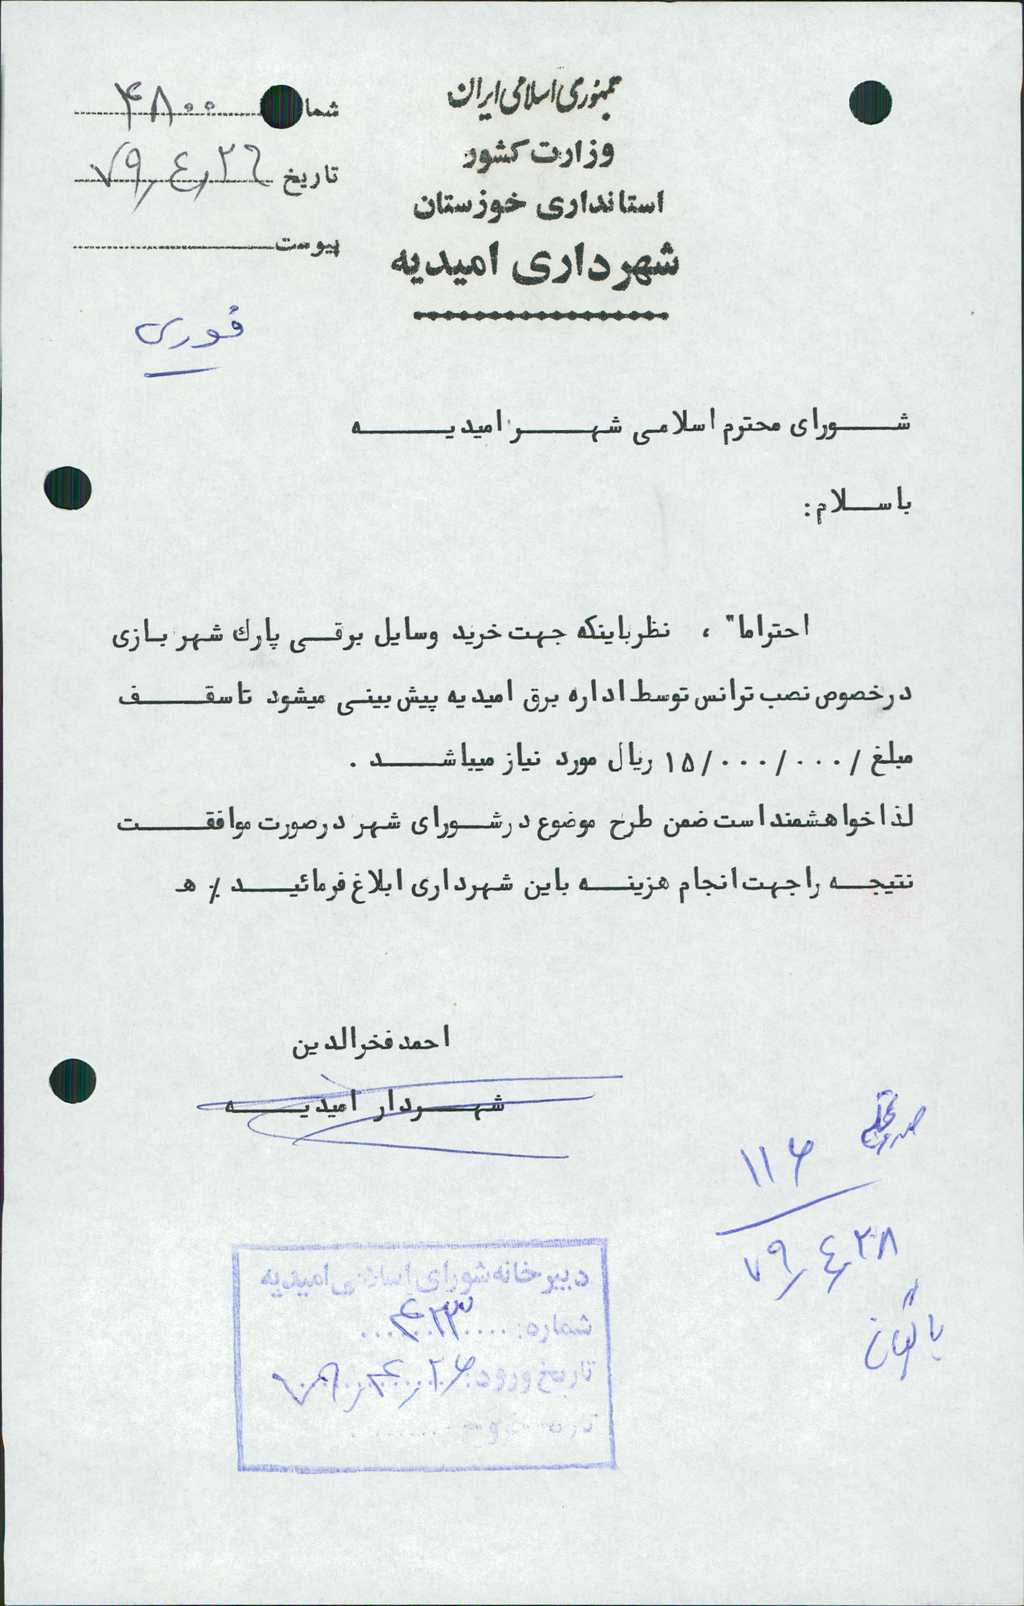 جمهوری اسلامی ایران
وزارت کشور
استانداری خوزستان
شهرداری امیدیه
شما ۴۸۰۰
تاریخ ۷۹٫۴٫۲۶
پیوست
فوری
شورای محترم اسلامی شهر امیدیه
باسلام:
احتراما" ، نظرباینکه جهت خرید وسایل برقی پارك شهر بازی
درخصوص نصب ترانس توسط اداره برق امیدیه پیش بینی میشود تاسقف
مبلغ /۱۵/۰۰۰/۰۰۰ ریال مورد نیاز میباشد .
لذاخواهشمنداست ضمن طرح موضوع درشورای شهر درصورت موافقت
نتیجه راجهت انجام هزینه باین شهرداری ابلاغ فرمائید ٪ ه
احمد فخرالدین
شهردار امیدیه
۱۱۶
۷۹٫۴٫۲۸
دبیرخانه شورای اسلامی امیدیه
شماره: ۴۲۳
تاریخ ورود: ۷۹٫۴٫۲۶